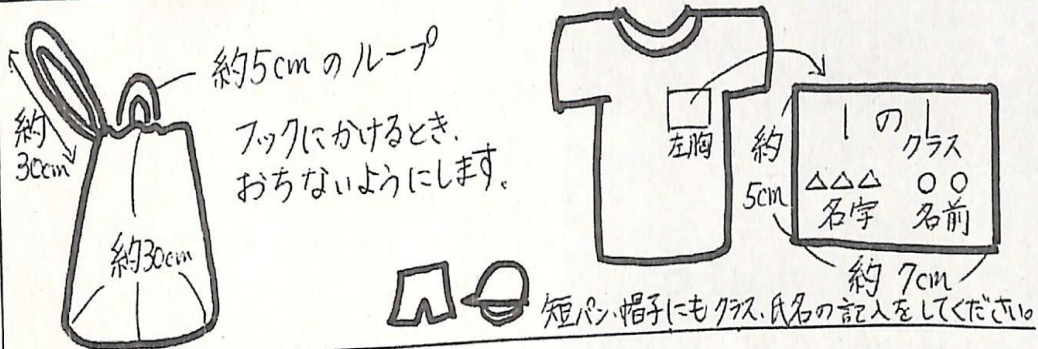 約5cmのループ
フックにかけるとき、
おちないようにします。
約
30cm
約30cm
左胸
1の1
クラス
△△△ ○○
名字 名前
約
5cm
約7cm
短パン、帽子にもクラス、氏名の記入をしてください。